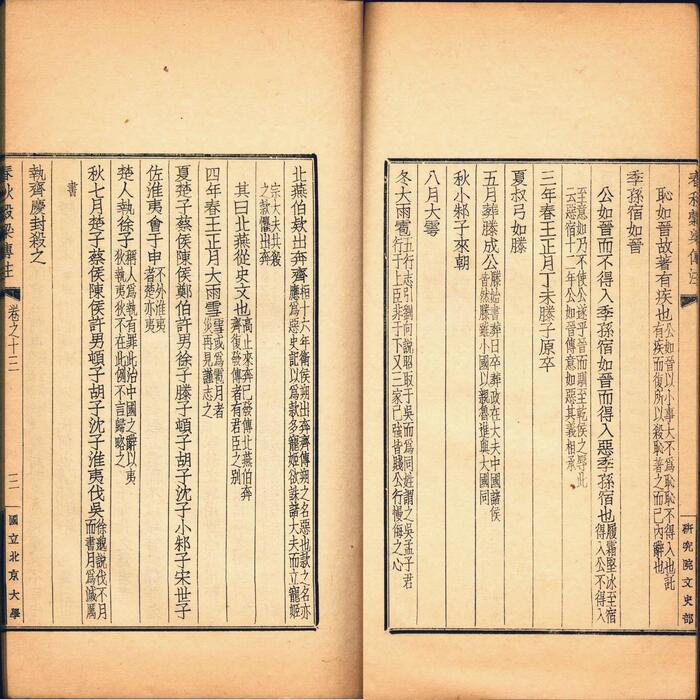 恥如晉故著有疾也公如晉以小事大不為恥恥不得入也託
有疾而復所以殺恥著之而已內辭也
季孫宿如晉
公如晉而不得入季孫宿如晉而得入惡季孫宿也履霜堅冰至宿
得入公不得入
至意如乃不使公遂乎晉而頭至乾侯之辱此
云惡宿十二年公如晉傳意如惡其義相承
三年春王正月丁未滕子原卒
夏叔弓如滕
五月葬滕成公滕始書葬日卒葬政在大夫中國諸侯
昔然滕雖小國以親魯進與大國同
秋小邾子來朝
八月大雩
冬大雨雹五行志引劉向說昭取于吳而為同姓謂之吳孟子君
行于上臣非于下又三家已強皆賤公行慢侮之心
北燕伯款出奔齊桓十六年衛侯朔出奔齊傳朔之名惡也款之名亦
應為惡史記以為款多寵姬欲誅諸大夫而立寵姬
宗大夫共殺
之款懼出奔
其曰北燕從史文也高止來奔已發傳北燕伯奔
齊復發傳者有君臣之別
四年春王正月大雨雪雪或為雹月者
災再見謹志之
夏楚子蔡侯陳侯鄭伯許男徐子滕子頓子胡子沈子小邾子宋世子
佐淮夷會于申不外淮夷
者楚亦夷
楚人執徐子稱人為執有罪此治中國之辭以夷
狄執夷狄不在此例不言歸略之
秋七月楚子蔡侯陳侯許男頓子胡子沈子淮夷伐吳徐邈說伐不月
而書月為誠厲
書
執齊慶封殺之
春秋穀梁傳注
卷之十三
二
國立北京大學
研究院文史部